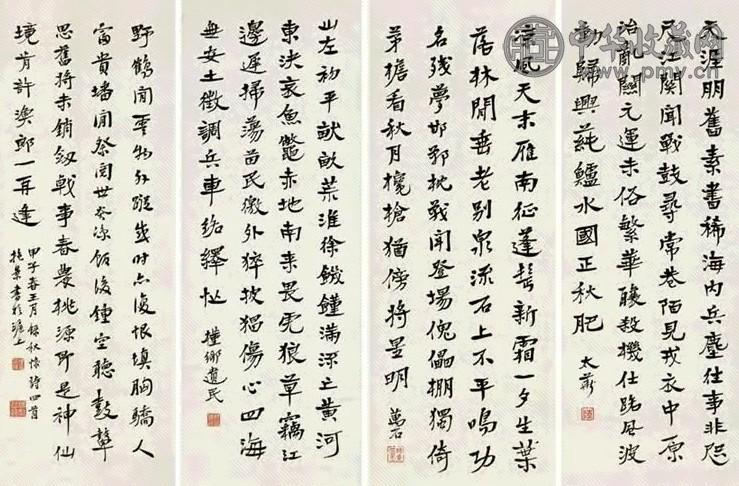 中华收藏网
www.pmv.cn
天涯朋舊素書稀海内兵塵往事非咫
尺江関聞戰鼓尋常巷陌見戎衣中原
治亂關元運末俗繁華釀殺機仕路風波
動歸興蒓鱸水國正秋肥
涼風天末雁南征蓬髩新霜一夕生葉
落林間垂老別泉流石上不平鳴功
名殘夢邯鄲枕戰鬥登場傀儡棚獨倚
茅檐看秋月欃槍猶傍將星明 萬石
山左初平畝菜淮徐饑饉滿流亡黄河
東決哀魚鼈赤地南来畏虎狼草竊江
邊遲掃蕩苗民徼外猝披猖傷心四海
無安土徵調兵車絡繹忙 鄉遺民
野鶴閒雲物外蹤歲時亦復恨填胸驕人
富貴墦間祭閱世炎凉飯後鐘空聽鼓鼙
思舊將未銷劍戟事春農桃源即是神仙
境肯許漁郎一再逢
甲子春王月録秋懷詩四首
書於滬上